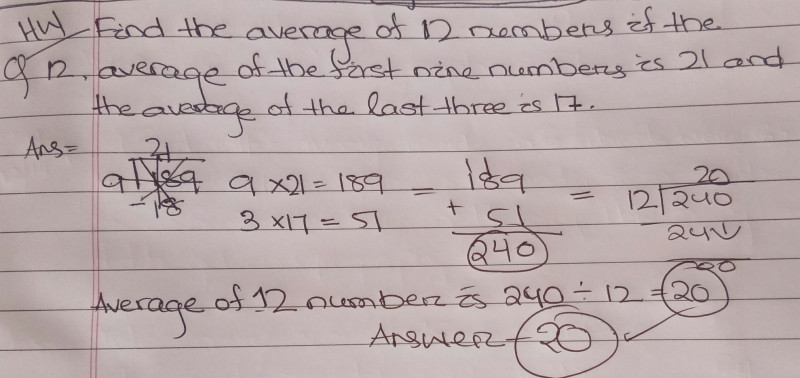 HW Find the average of 12 numbers if the
Q 12. average of the first nine numbers is 21 and
the average of the last three is 17.
Ans= 21
9 189 9 x 21 = 189 = 189 = 20
-18 3 x 17 = 51 + 51 12 240
240 24
00
Average of 12 number is 240 ÷ 12 = 20
Answer - 20